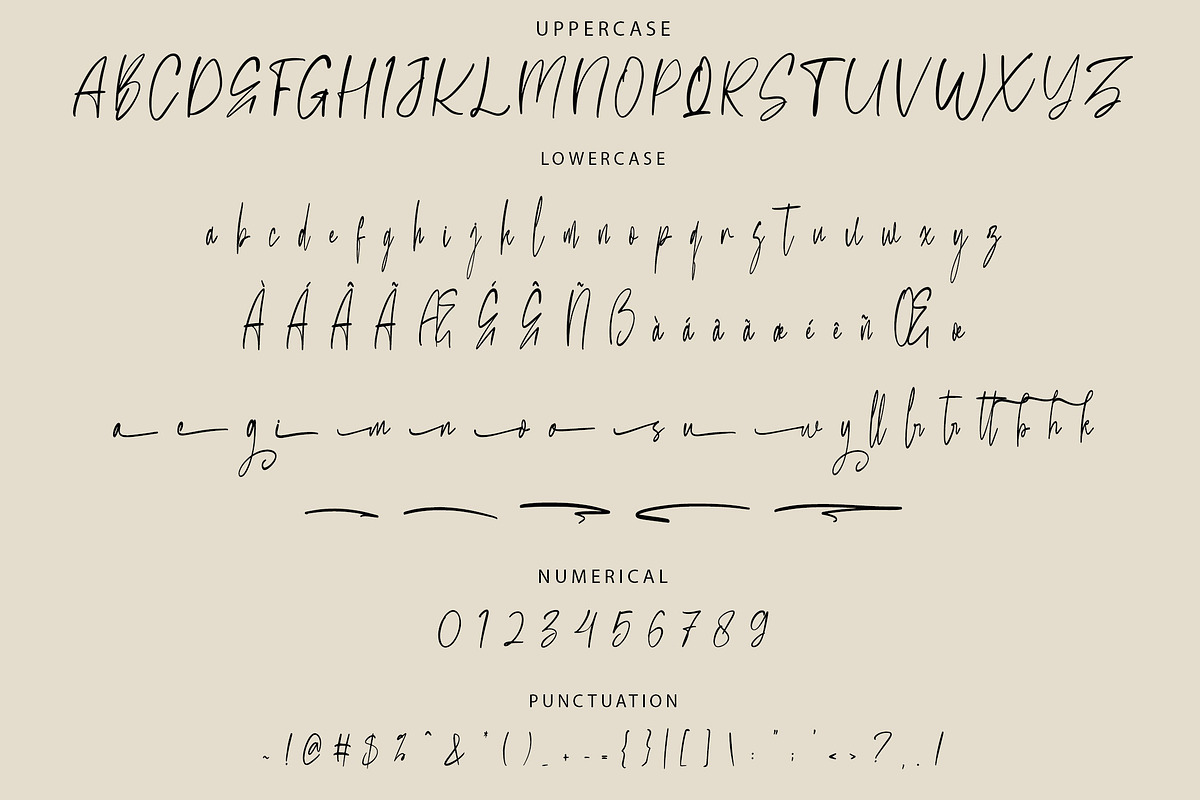 UPPERCASE
ABCDEFGHIJKLMNOPQRSTUVWXYZ
LOWERCASE
a b c d e f g h i j k l m n o p q r s t u v w x y z
À Á Â Ã Æ É Ê Ñ ß à á â ã æ é ê ñ Œ œ
a e g i m n o o s u w y ll lr tr tt b h k
NUMERICAL
0 1 2 3 4 5 6 7 8 9
PUNCTUATION
~ ! @ # $ % ^ & * ( ) _ + - = { } | [ ] \ : " ; ' < > ? , . /